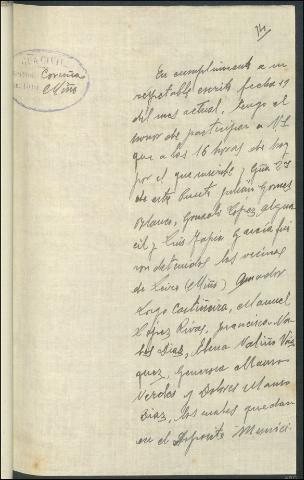 Coruña
Miño
En cumplimiento a su
respetable escrito fecha 29
del mes actual, tengo el
honor de participar a V.S.
que a las 16 horas de hoy
por el que suscribe y Guª 2º
de este Puesto Julián Gomez
Blanco, Gonzalo López, algua
cil y Luis Tapia Garcia fue
ron detenidos los vecinos
de Leiro (Miño) Amador
Lago Castiñeira, Manuel
López Rivas, Francisca
Diaz, Elena Vatiño Váz
quez, Generosa Mauro
y Dolores Mauro
Diaz, los cuales quedan
en el Depósito Munici-